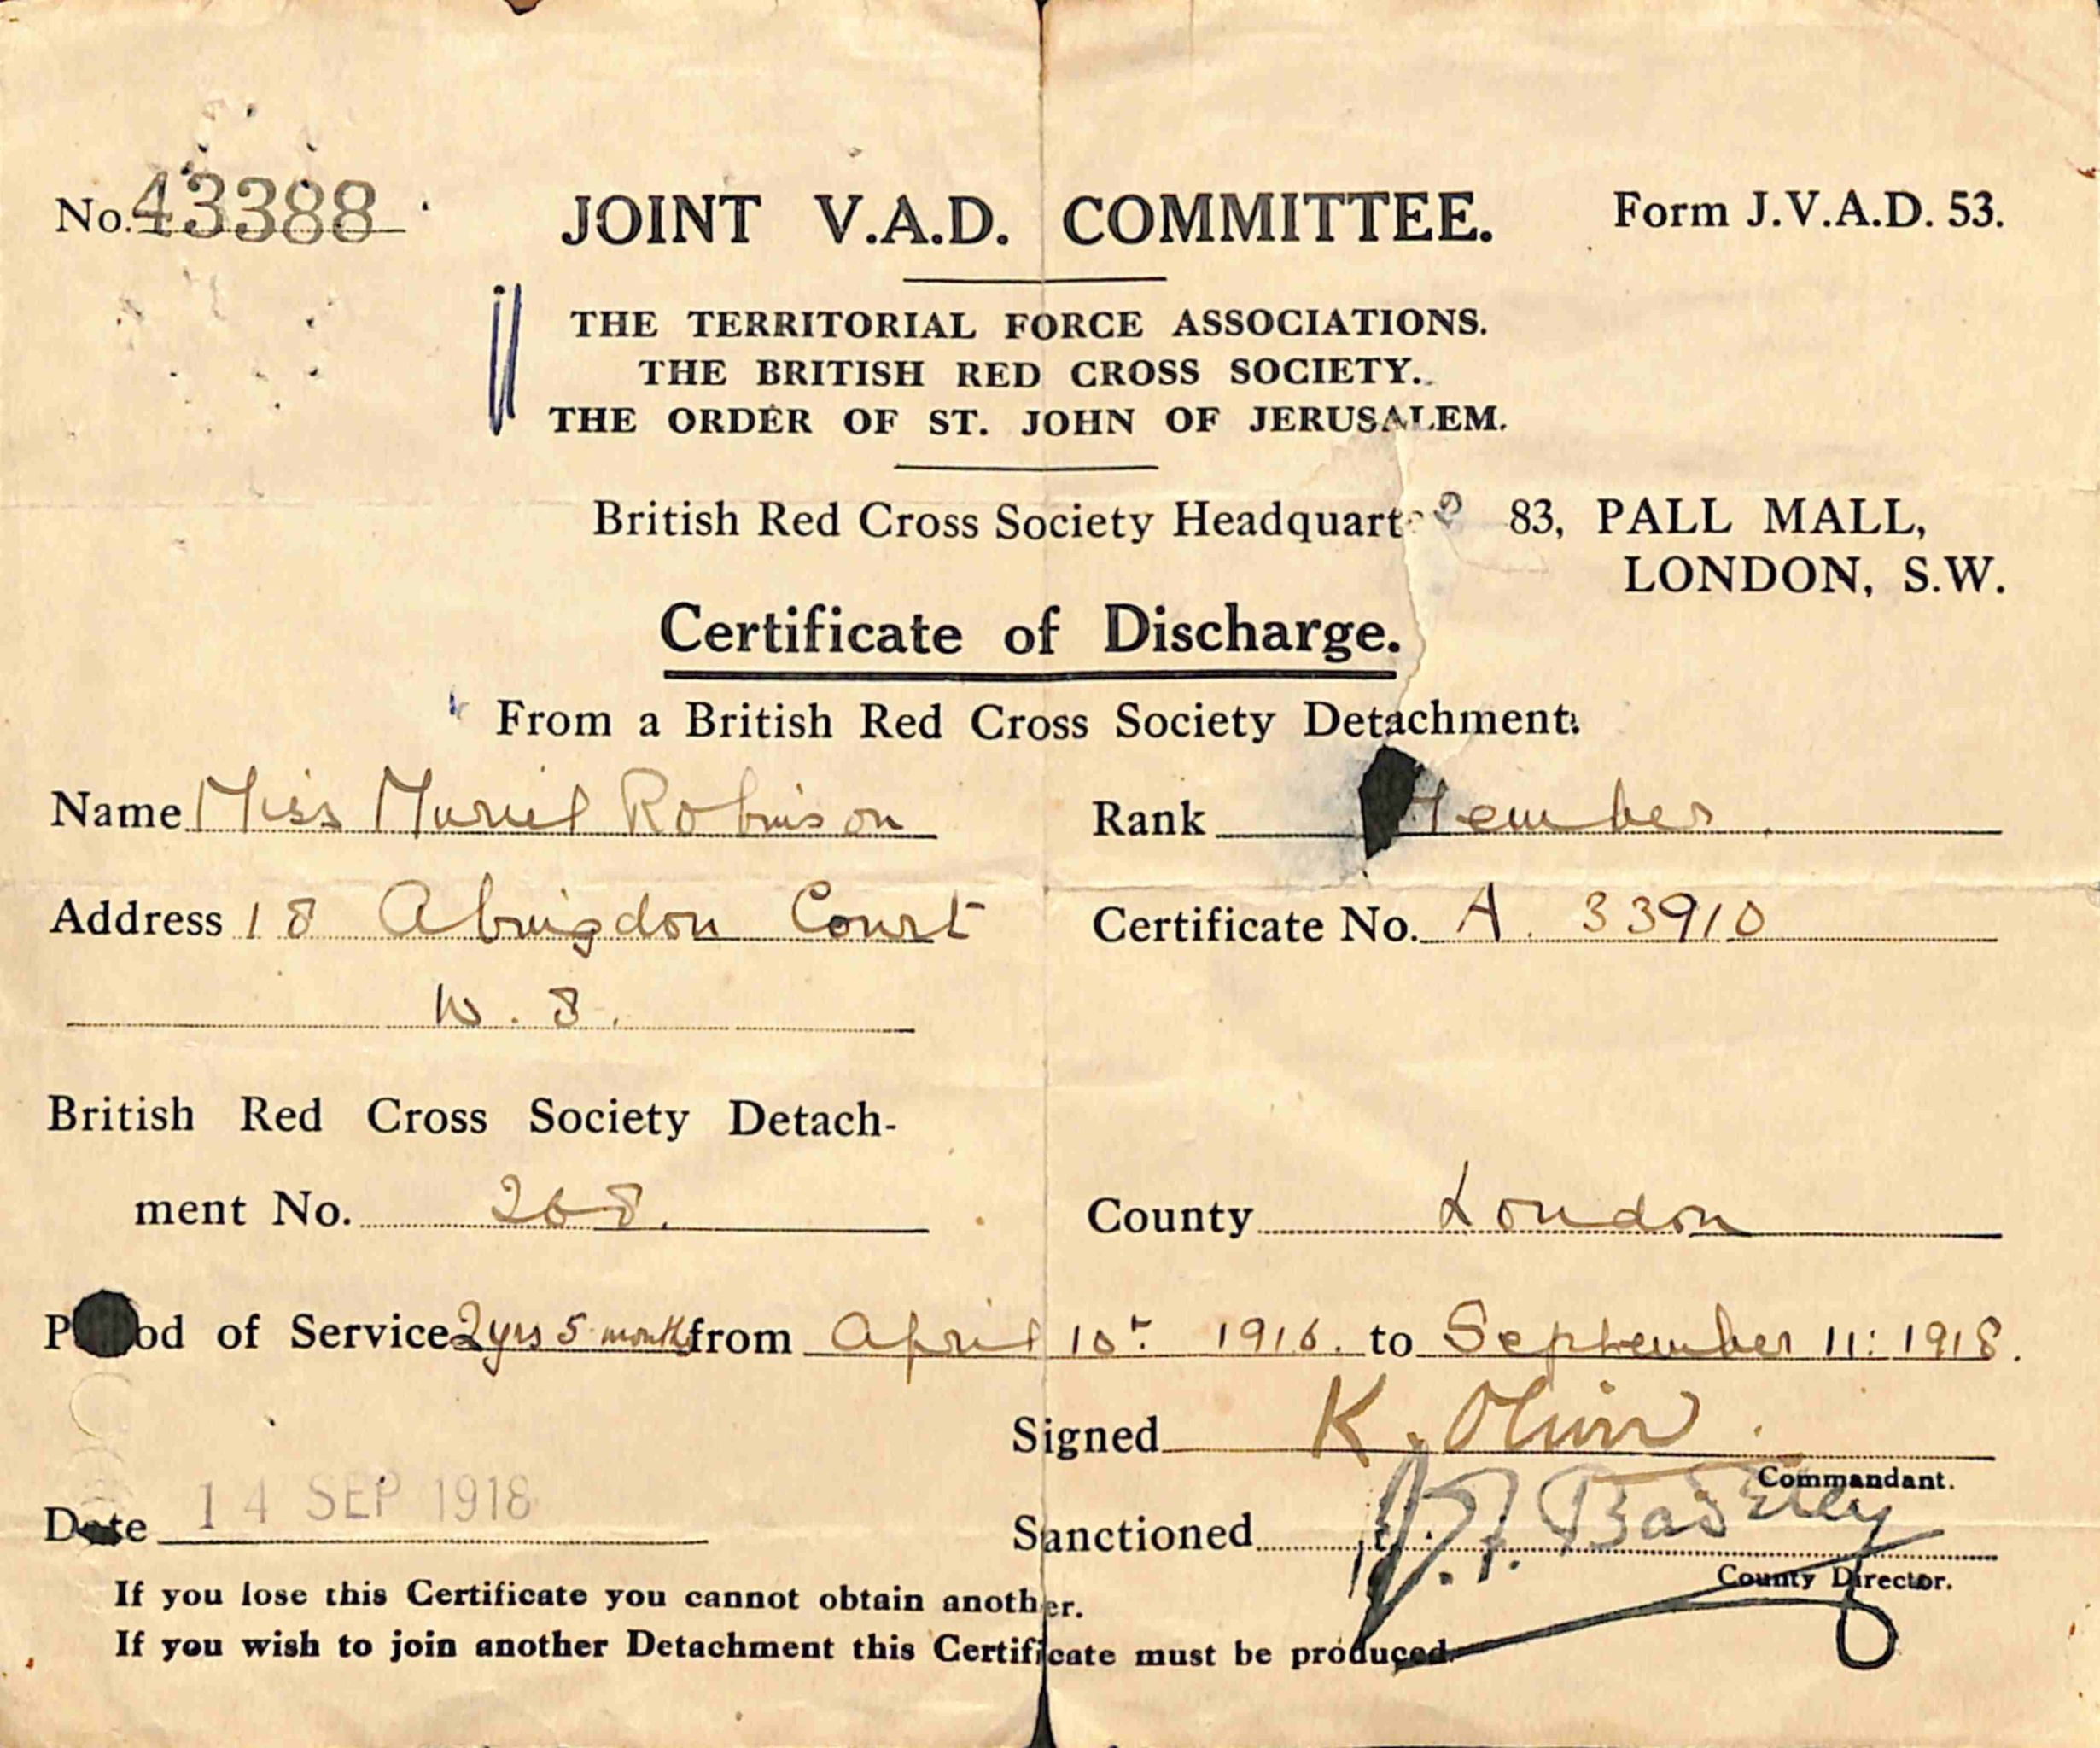 No. 43388
JOINT V.A.D. COMMITTEE.
Form J.V.A.D. 53.
THE TERRITORIAL FORCE ASSOCIATIONS.
THE BRITISH RED CROSS SOCIETY.
THE ORDER OF ST. JOHN OF JERUSALEM.
British Red Cross Society 83, PALL MALL,
LONDON, S.W.
Certificate of Discharge.
From a British Red Cross Society Detachment.
Name Miss Muriel Robinson
Rank Member
Address 18 Abingdon Court
Certificate No. A. 33910
W. 8.
British Red Cross Society Detach-
ment No. 268.
County London
Period of Service 2 yrs 5 months from April 10th 1916. to September 11: 1918.
Signed K.
Commandant.
Date 14 SEP 1918
Sanctioned
County Director.
If you lose this Certificate you cannot obtain another.
If you wish to join another Detachment this Certificate must be produced.